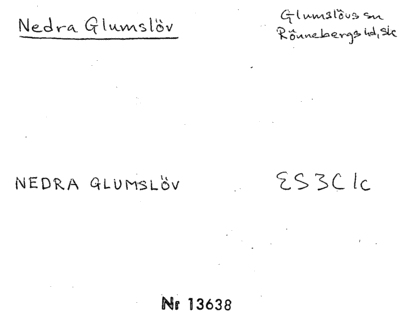 Nedra Glumslöv
Glumslövs sn
Rönnebergs hd, sk
NEDRA GLUMSLÖV
ES3C1c
Nr 13638